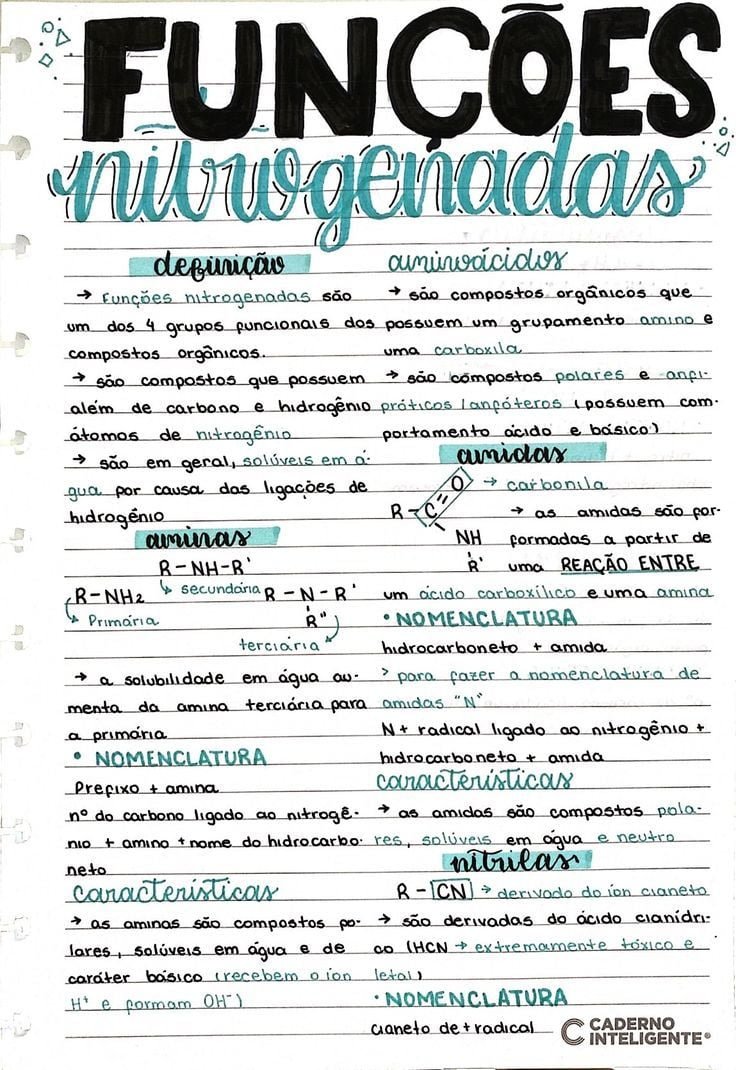 FUNÇÕES
nitrogenadas
definição
→ Funções nitrogenadas são
um dos 4 grupos funcionais dos
compostos orgânicos.
→ são compostos que possuem
além de carbono e hidrogênio
átomos de nitrogênio
→ são em geral, solúveis em á-
gua por causa das ligações de
hidrogênio
aminas
R-NH-R'
↳ secundária
R-NH2
↳ Primária
R-N-R'
R"
terciária
→ a solubilidade em água au-
menta da amina terciária para
a primária
• NOMENCLATURA
Prefixo + amina
nº do carbono ligado ao nitrogê-
nio + amino + nome do hidrocarbo-
neto
características
→ as aminas são compostos po-
lares, solúveis em água e de
caráter básico (recebem o íon
H⁺ e formam OH⁻)
aminoácidos
→ são compostos orgânicos que
possuem um grupamento amino e
uma carboxila
→ são compostos polares e anfi-
próticos / anfóteros (possuem com-
portamento ácido e básico)
amidas
O → carbonila
R-C=
NH
R'
→ as amidas são for-
formadas a partir de
uma REAÇÃO ENTRE
um ácido carboxílico e uma amina
• NOMENCLATURA
hidrocarboneto + amida
> para fazer a nomenclatura de
amidas "N"
N + radical ligado ao nitrogênio +
hidrocarboneto + amida
características
→ as amidas são compostos pola-
res, solúveis em água e neutro
nitrilas
R-CN → derivado do íon cianeto
→ são derivadas do ácido cianídri-
co (HCN → extremamente tóxico e
letal)
• NOMENCLATURA
cianeto de + radical
CADERNO
INTELIGENTE®